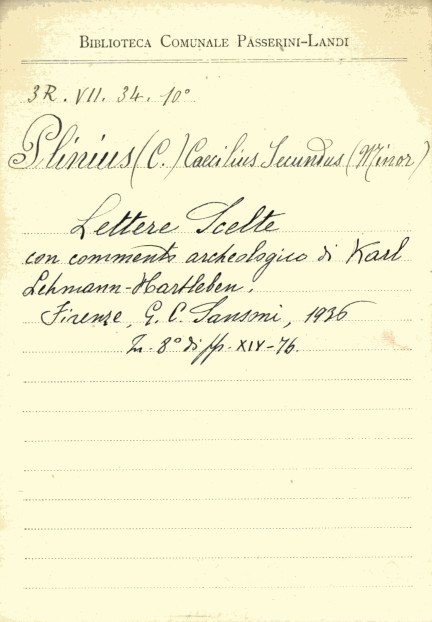 BIBLIOTECA COMUNALE PASSERINI-LANDI
3R. VII. 34. 10°
Plinius (C.) Caecilius Secundus (Minor)
Lettere Scelte
con commento archeologico di Karl
Lehmann-Hartleben.
Firenze, G. C. Sansoni, 1936
In-8° di pp. XIV-76.